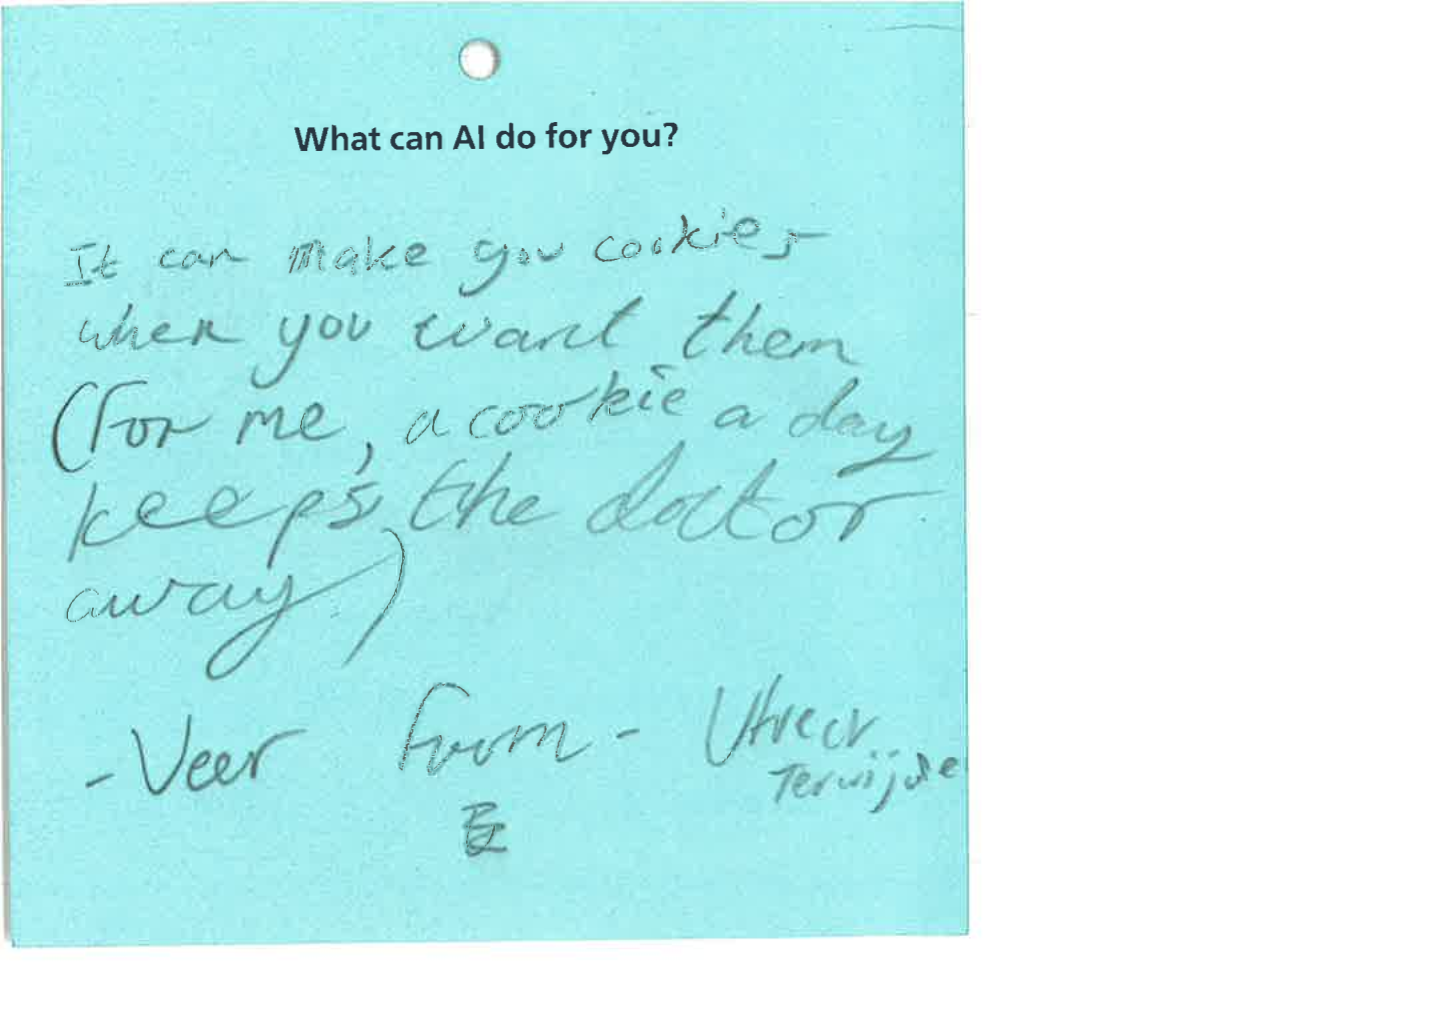 What can AI do for you?
It can make you cookies
when you want them
(For me, a cookie a day
keeps the doctor
away.)
- Veer from - Utrecr
Terwijde